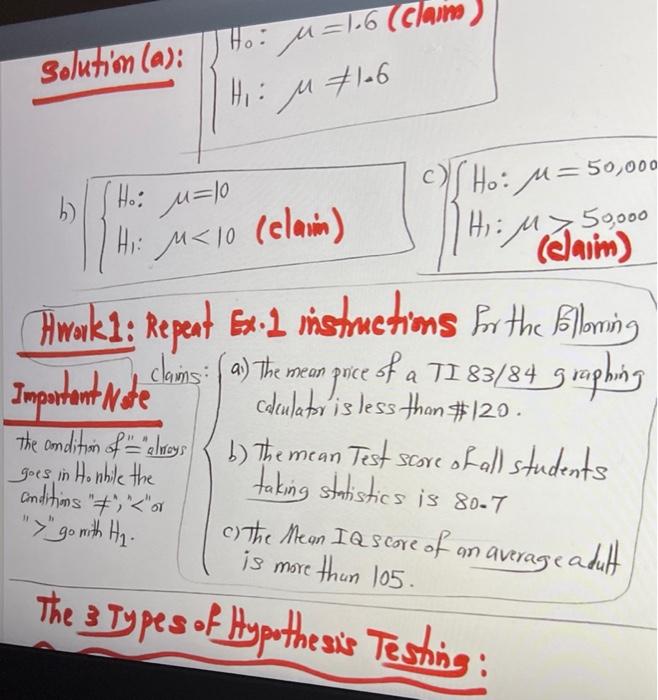 Solution (a):
H₀: μ=1.6 (claim)
H₁: μ≠1.6
b)
H₀: μ=10
H₁: μ<10 (claim)
c)
H₀: μ=50,000
H₁: μ>50,000
(claim)
Hwork1: Repeat Ex.1 instructions for the following
claims:
a) The mean price of a TI 83/84 graphing
calculator is less than $120.
b) The mean Test score of all students
taking statistics is 80.7
c) The Mean IQ score of an average adult
is more than 105.
Important Note
The condition of "=" always
goes in H₀ while the
conditions "≠", "<" or
">" go with H₁.
The 3 Types of Hypothesis Testing: